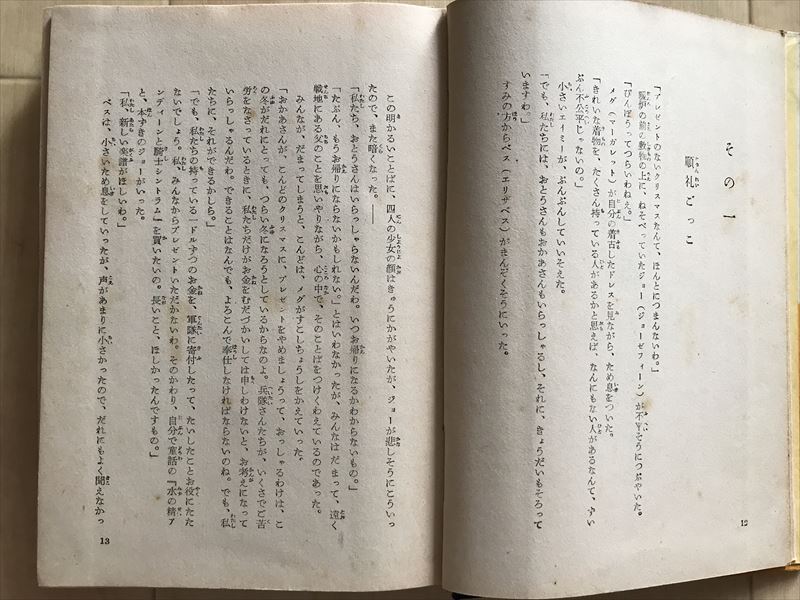 その一
順礼ごっこ
「プレゼントのないクリスマスなんて、ほんとにつまんないわ。」
暖炉の前の敷物の上に、ねそべっていたジョー（ジョーゼフィーン）が不平そうにつぶやいた。
「びんぼうってつらいわねえ。」
メグ（マーガレット）が自分の着古したドレスを見ながら、ため息をついた。
「きれいな着物を、たくさん持っている人があるかと思えば、なんにもない人があるなんて、ずい
ぶん不公平じゃないの。」
小さいエイミーが、ぷんぷんしていいそえた。
「でも、私たちには、おとうさんもおかあさんもいらっしゃるし、それに、きょうだいもそろって
いますわ。」
すみの方からベス（エリザベス）がまんぞくそうにいった。
12
この明かるいことばに、四人の少女の顔はきゅうにかがやいたが、ジョーが悲しそうにこういっ
たので、また暗くなった。――
「私たち、おとうさんはいらっしゃらないんだわ。いつお帰りになるかわからないもの。」
「たぶん、もうお帰りにならないかもしれない。」とはいわなかったが、みんなはだまって、遠く
戦地にある父のことを思いやりながら、心の中で、そのことばをつけくわえているのであった。
みんなが、だまってしまうと、こんどは、メグがすこしちょうしをかえていった、
「おかあさんが、こんどのクリスマスに、プレゼントをやめましょうって、おっしゃるわけは、こ
の冬がだれにとっても、つらい冬になろうとしているからなのよ。兵隊さんたちが、いくさでご苦
労をなさっているときに、私たちだけがお金をむだづかいしては申しわけないと、お考えになって
いらっしゃるんだわ。できることはなんでも、よろこんで奉仕しなければならないのね。でも、私
たちに、それができるかしら。」
「でも、私たちの持っている一ドルずつのお金を、軍隊に寄付したって、たいしたことお役にたた
ないでしょう。私、みんなからプレゼントいただかないわ。そのかわり、自分で童話の『水の精ア
ンディーンと騎士シントラム』を買いたいの。長いこと、ほしかったんですもの。」
と、本ずきのジョーがいった。
「私、新しい楽譜がほしいわ。」
ベスは、小さいため息をしていったが、声があまりに小さかったので、だれにもよく聞えなかっ
13